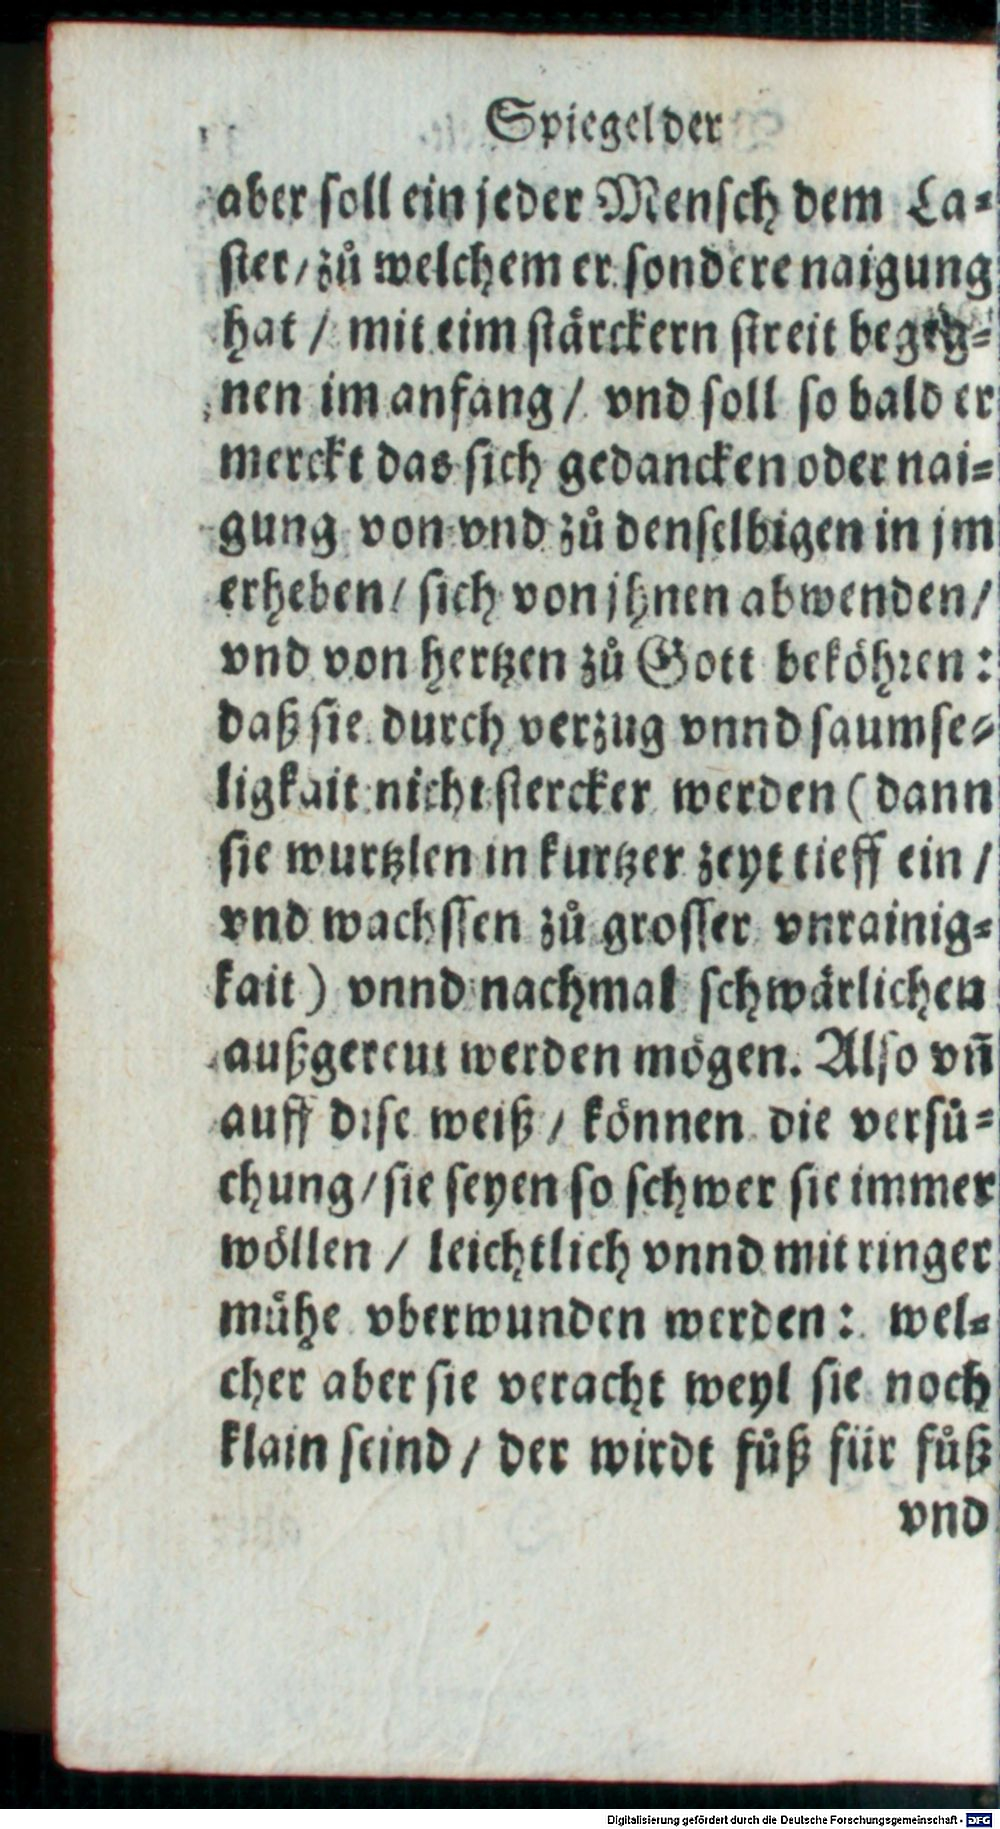 Spiegel der
aber soll ein jeder Mensch dem La⸗
ster / zů welchem er sondere naigung
hat / mit eim stärckern streit begeg⸗
nen im anfang / vnd soll so bald er
merckt das sich gedancken oder nai⸗
gung von vnd zů denselbigen in jm
erheben / sich von jhnen abwenden /
vnd von hertzen zů Gott beköhren :
daß sie durch verzug vnnd saumse⸗
ligkait nicht stercker werden ( dann
sie wurtzlen in kurtzer zeyt tieff ein /
vnd wachssen zů grosser vnrainig⸗
kait ) vnnd nachmal schwärlichen
außgereut werden mögen. Also vñ
auff dise weiß / können die versů⸗
chung / sie seyen so schwer sie immer
wöllen / leichtlich vnnd mit ringer
mühe vberwunden werden : wel⸗
cher aber sie veracht weyl sie noch
klain seind / der wirdt fůß für fůß
vnd
Digitalisierung gefördert durch die Deutsche Forschungsgemeinschaft - DFG